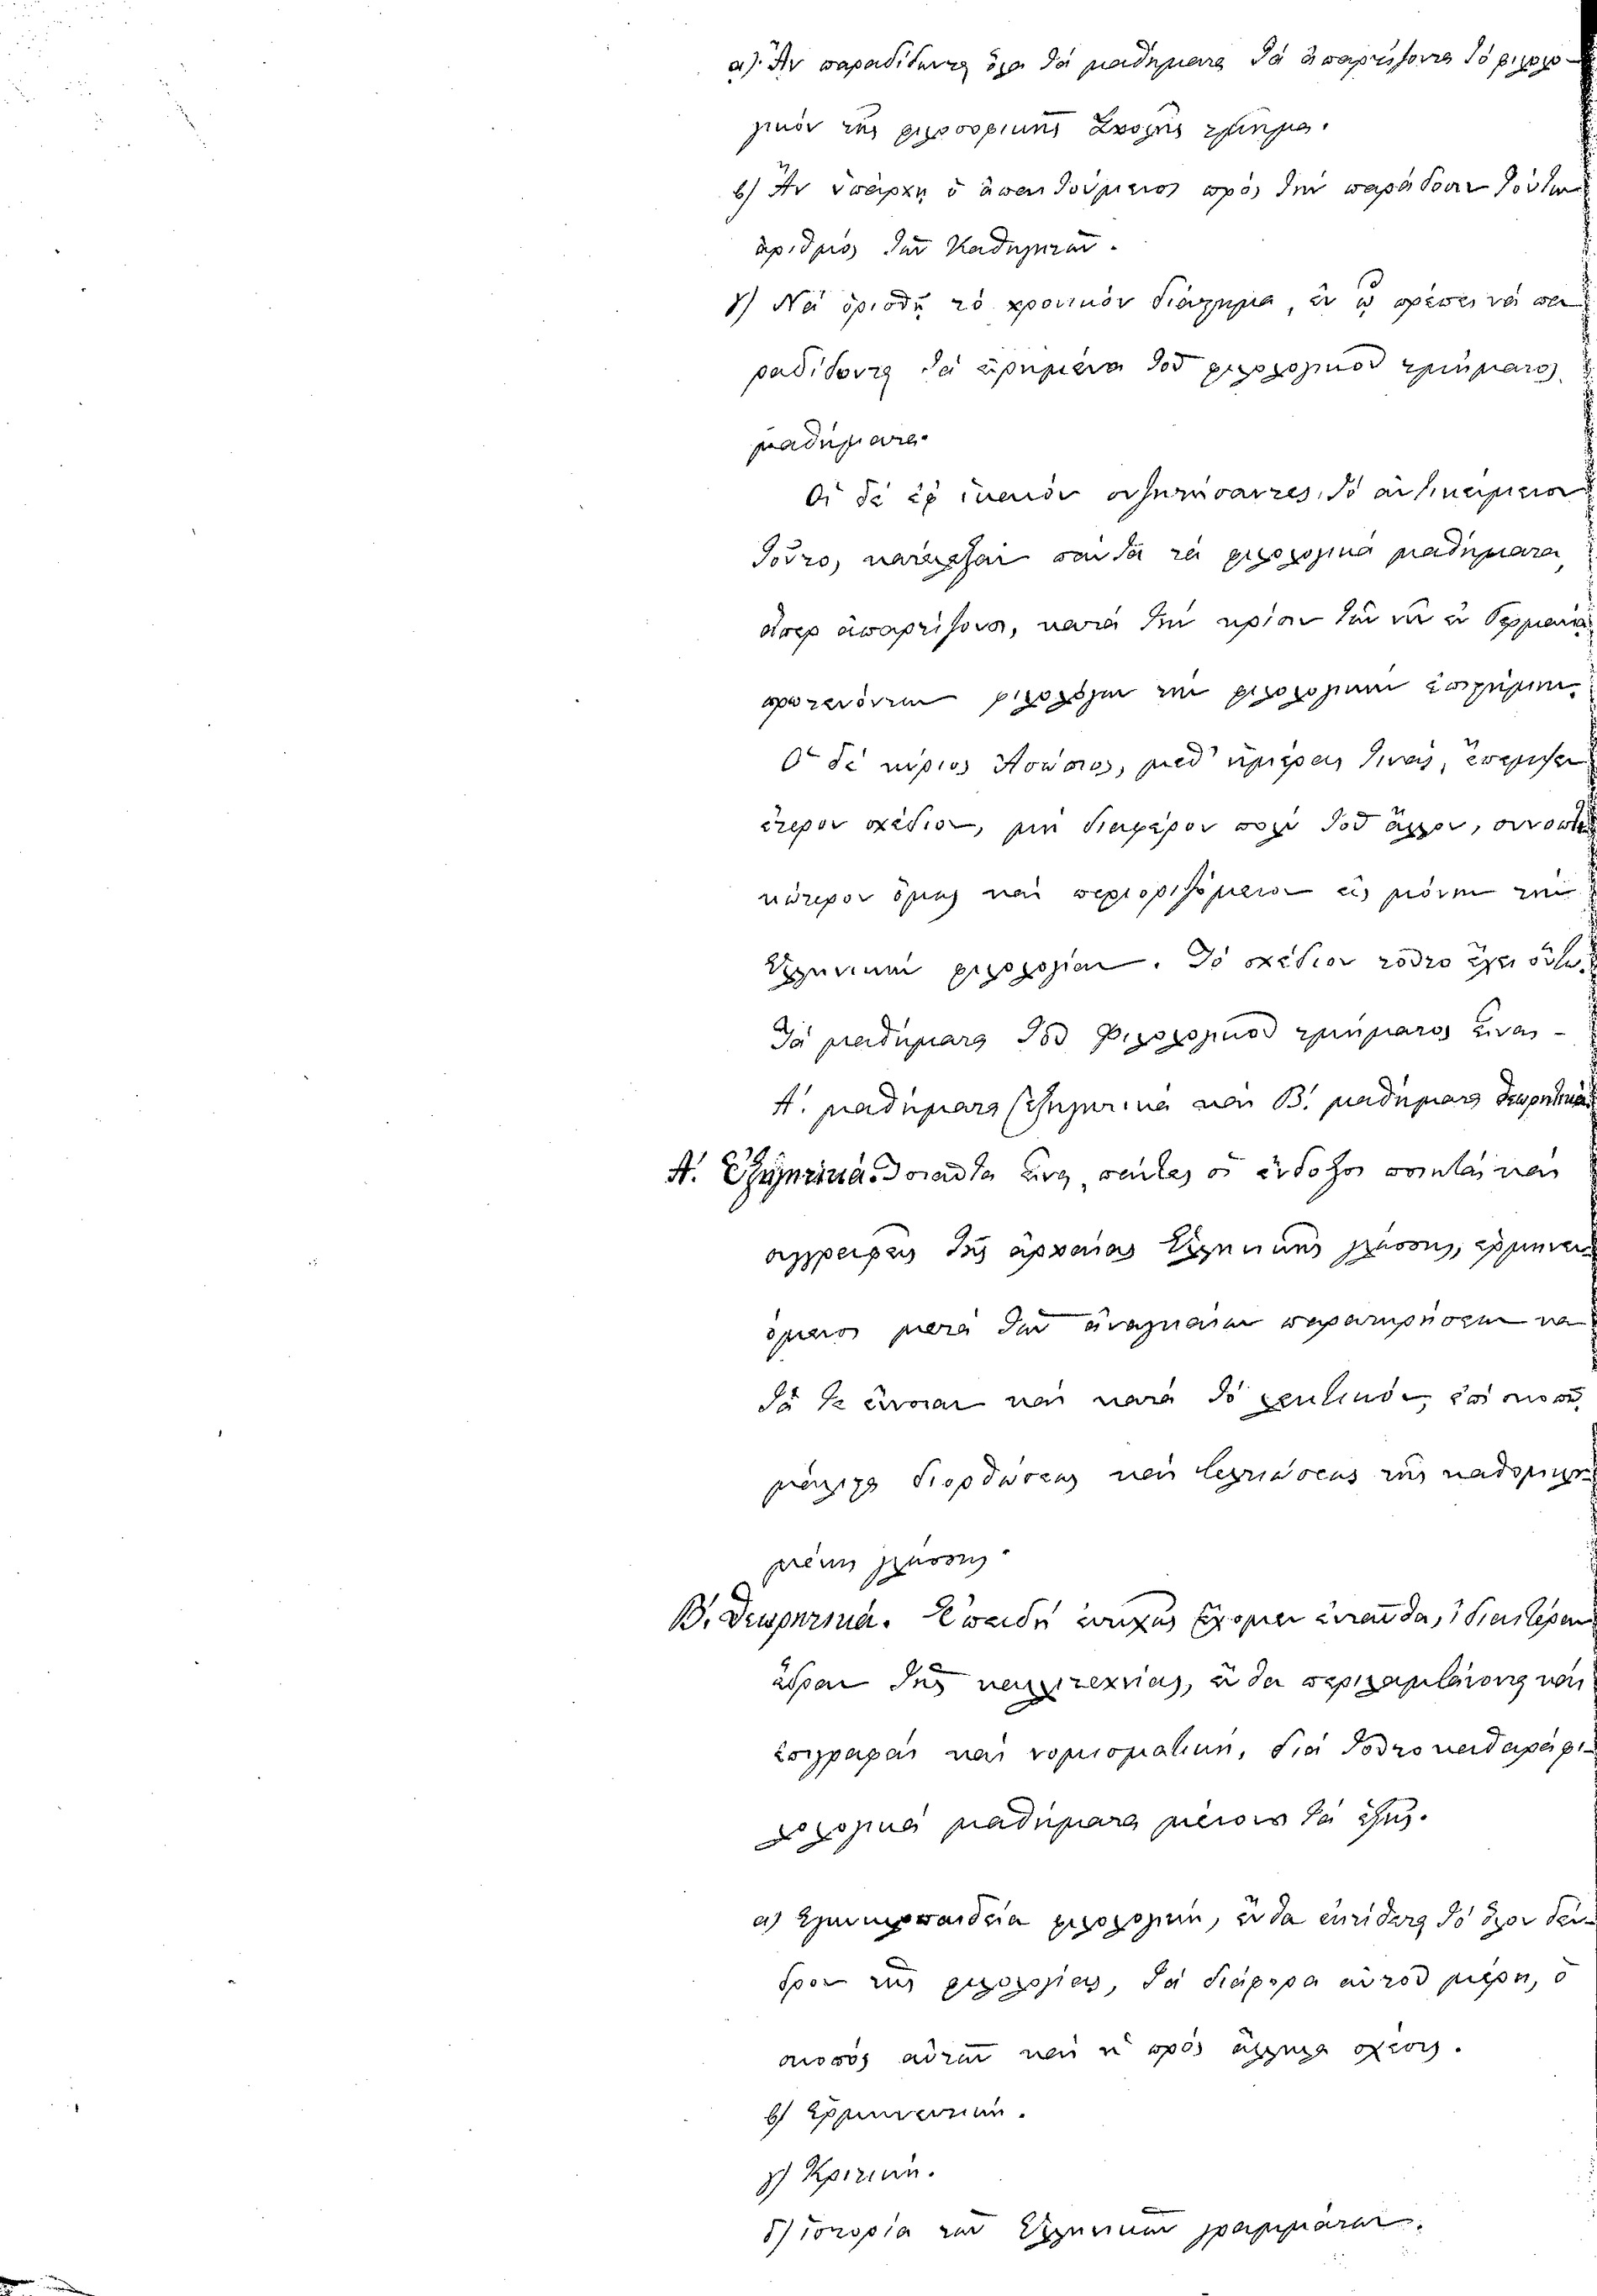 α). Ἂν παραδίδωνται ὅλα τὰ μαθήματα τὰ ἀπαρτίζοντα τὸ φιλολο-
γικὸν τῆς φιλοσοφικῆς Σχολῆς τμῆμα.
β) Ἂν ὑπάρχῃ ὁ ἀπαιτούμενος πρὸς τὴν παράδοσιν τούτων
ἀριθμὸς τῶν Καθηγητῶν.
γ) Νὰ ὁρισθῇ τὸ χρονικὸν διάστημα, ἐν ᾧ πρέπει νὰ πα
ραδίδωνται τὰ εἰρημένα τοῦ φιλολογικοῦ τμήματος
μαθήματα.
Οἱ δὲ ἐξ ἱκανῶν συζητήσαντες τὸ ἀντικείμενον
τοῦτο, κατέταξαν πάντα τὰ φιλολογικὰ μαθήματα
ἅπερ ἀπαρτίζουσι, κατὰ τὴν κρίσιν τῶν νῦν ἐν Γερμανίᾳ
πρωτευόντων φιλολόγων τὴν φιλολογικὴν ἐπιστήμην.
Ὁ δὲ κύριος Ἀσώπιος, μεθ' ἡμέρας τινὰς, ἔπεμψεν
ἕτερον σχέδιον, μὴ διαφέρον πολὺ τοῦ ἄλλου, συνοπτι
κώτερον ὅμως καὶ περιοριζόμενον εἰς μόνην τὴν
Ἑλληνικὴν φιλολογίαν. Τὸ σχέδιον τοῦτο ἔχει οὕτω.
Τὰ μαθήματα τοῦ Φιλολογικοῦ τμήματος εἶναι -
Α'. μαθήματα ἐξηγητικὰ καὶ Β'. μαθήματα θεωρητικά
Α'. Ἐξηγητικά. Τοιαῦτα εἶναι πάντες οἱ ἔνδοξοι ποιηταὶ καὶ
συγγραφεῖς τῆς ἀρχαίας Ἑλληνικῆς γλώσσης, ἑρμηνευ
όμενοι μετὰ τῶν ἀναγκαίων παρατηρήσεων κα
τά τε ἔννοιαν καὶ κατὰ τὸ τεχνικὸν, ἐπὶ σκοπῷ
μάλιστα διορθώσεως καὶ βελτιώσεως τῆς καθομιλου
μένης γλώσσης.
Β'. Θεωρητικά. Ἐπειδὴ εὐτυχῶς ἔχομεν ἐνταῦθα, ἰδιαιτέραν
ἕδραν τῆς καλλιτεχνίας, ἐν ᾗ περιλαμβάνονται καὶ
ἐπιγραφαὶ καὶ νομισματικὴ, διὰ τοῦτο καθαρὰ φι-
λολογικὰ μαθήματα μένουσι τὰ ἑξῆς.
α) Ἐγκυκλοπαιδεία φιλολογικὴ, ἐν ᾗ ἐκτίθεται τὸ ὅλον δέν-
δρον τῆς φιλολογίας, τὰ διάφορα αὐτοῦ μέρη, ὁ
σκοπὸς αὐτῶν καὶ ἡ πρὸς ἄλληλα σχέσις.
β) Ἑρμηνευτική.
γ) Κριτική.
δ) Ἱστορία τῶν Ἑλληνικῶν γραμμάτων.